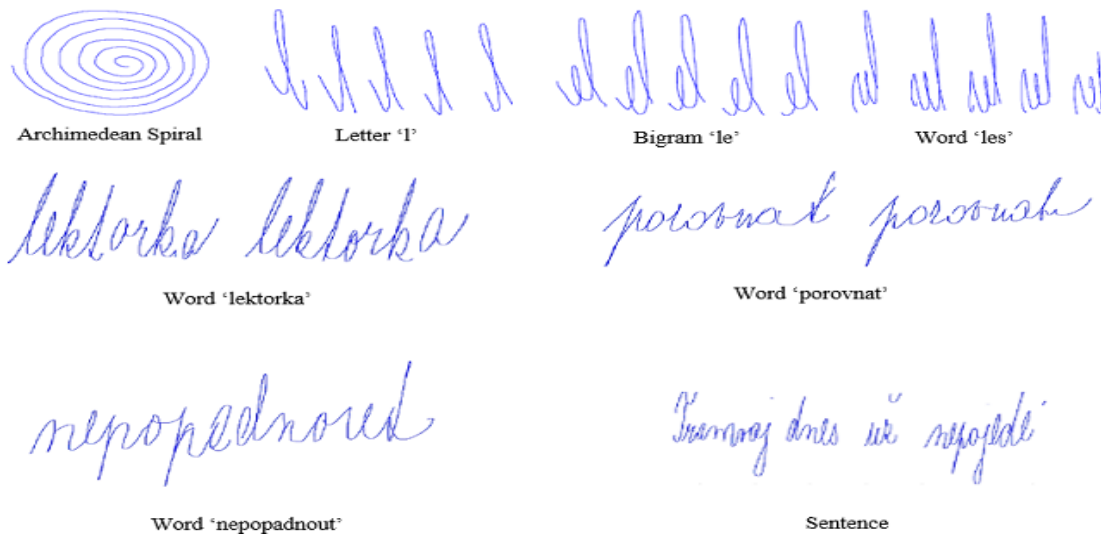 Archimedean Spiral Letter ‘l’ Bigram ‘le’ Word ‘les’
lektorka lektorka porovnat porovnat
Word ‘lektorka’ Word ‘porovnat’
nepopadnout Tramvaj dnes už nepojede
Word ‘nepopadnout’ Sentence